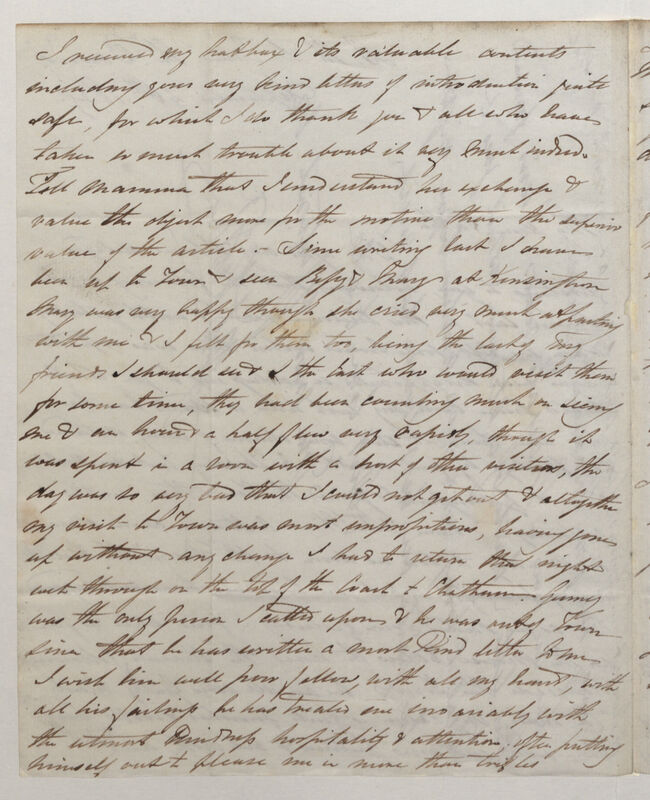 I received my hatbox & its valuable contents
including your very kind letters of introduction quite
safe, for which I do thank you & all who have
taken so much trouble about it very much indeed.
Tell Mamma that I understand her exchange &
value the object more for the motive than the superior
value of the article. - Since writing last I have
been up to Town & seen Bessy & Mary at Kensington
Mary was very happy though she cried very much at parting
with me & I felt for them too, being the last of my
friends I should see & the last who would visit them
for some time, they had been counting much on seeing
me & an hour & a half flew very rapidly, though it
was spent in a room with a host of other visitors, the
day was so very bad that I could not get out & altogether
my visit to Town was most unpropitious, having gone
up without any change I had to return that night
wet through on the top of the Coach to Chatham.
was the only person I called upon & he was out of Town
since that he has written a most kind letter to me
I wish him well poor fellow, with all my heart, with
all his failings he has treated me invariably with
the utmost kindness hospitality & attention, often putting
himself out to please me in more than trifles